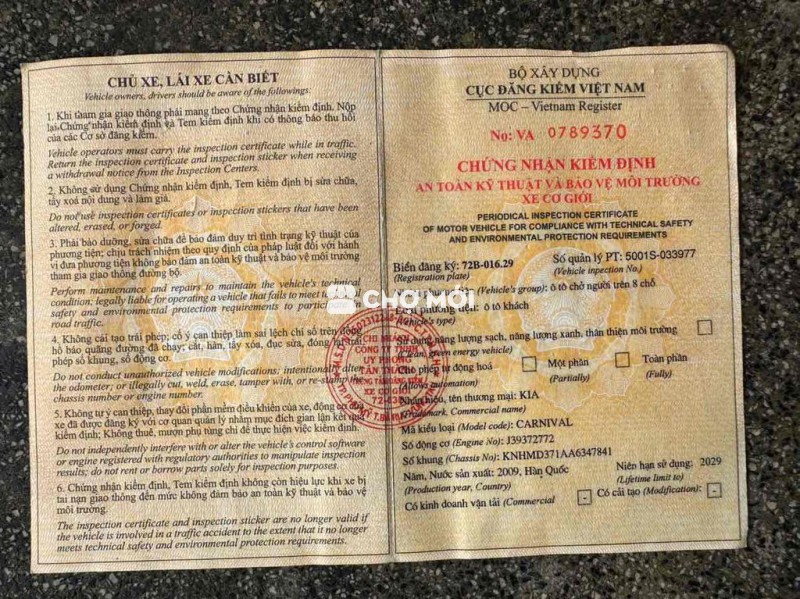 CHỦ XE, LÁI XE CẦN BIẾT
Vehicle owners, drivers should be aware of the followings:
1. Khi tham gia giao thông phải mang theo Chứng nhận kiểm định. Nộp
lại Chứng nhận kiểm định và Tem kiểm định khi có thông báo thu hồi
của các Cơ sở đăng kiểm.
Vehicle operators must carry the inspection certificate while in traffic.
Return the inspection certificate and inspection sticker when receiving
a withdrawal notice from the Inspection Centers.
2. Không sử dụng Chứng nhận kiểm định, Tem kiểm định bị sửa chữa,
tẩy xoá nội dung và làm giả.
Do not use inspection certificates or inspection stickers that have been
altered, erased, or forged.
3. Phải bảo dưỡng, sửa chữa để bảo đảm duy trì tình trạng kỹ thuật của
phương tiện; chịu trách nhiệm theo quy định của pháp luật đối với hành
vi đưa phương tiện không bảo đảm an toàn kỹ thuật và bảo vệ môi trường
tham gia giao thông đường bộ.
Perform maintenance and repairs to maintain the vehicle's technical
condition; legally liable for operating a vehicle that fails to meet
safety and environmental protection requirements to
road traffic.
4. Không cải tạo trái phép; cố ý can thiệp làm sai lệch chỉ số trên đồng
hồ báo quãng đường đã chạy; cắt, hàn, tẩy xóa, đục sửa, đóng lại trái
phép số khung, số động cơ.
Do not conduct unauthorized vehicle modifications; intentionally alter
the odometer; or illegally cut, weld, erase, tamper with, or re-stamp the
chassis number or engine number.
5. Không tự ý can thiệp, thay đổi phần mềm điều khiển của xe, động cơ của
xe đã được đăng ký với cơ quan quản lý nhằm mục đích gian lận kết quả
kiểm định; Không thuê, mượn phụ tùng chỉ để thực hiện việc kiểm định.
Do not independently interfere with or alter the vehicle's control software
or engine registered with regulatory authorities to manipulate inspection
results; do not rent or borrow parts solely for inspection purposes.
6. Chứng nhận kiểm định, Tem kiểm định không còn hiệu lực khi xe bị
tai nạn giao thông đến mức không đảm bảo an toàn kỹ thuật và bảo vệ
môi trường.
The inspection certificate and inspection sticker are no longer valid if
the vehicle is involved in a traffic accident to the extent that it no longer
meets technical safety and environmental protection requirements.
BỘ XÂY DỰNG
CỤC ĐĂNG KIỂM VIỆT NAM
MOC – Vietnam Register
No: VA 0789370
CHỨNG NHẬN KIỂM ĐỊNH
AN TOÀN KỸ THUẬT VÀ BẢO VỆ MÔI TRƯỜNG
XE CƠ GIỚI
PERIODICAL INSPECTION CERTIFICATE
OF MOTOR VEHICLE FOR COMPLIANCE WITH TECHNICAL SAFETY
AND ENVIRONMENTAL PROTECTION REQUIREMENTS
Biển đăng ký: 72B-016.29 Số quản lý PT: 5001S-033977
(Registration plate) (Vehicle inpection No.)
(Vehicle's group): ô tô chở người trên 8 chỗ
CHỢ MỚI
Loại phương tiện: ô tô khách
(Vehicle's type)
Sử dụng năng lượng sạch, năng lượng xanh, thân thiện môi trường
(Clean, green energy vehicle)
Cho phép tự động hoá Một phần Toàn phần
(Allows automation) (Partially) (Fully)
Nhãn hiệu, tên thương mại: KIA
(Trademark, Commercial name)
Mã kiểu loại (Model code): CARNIVAL
Số động cơ (Engine No): J39372772
Số khung (Chassis No): KNHMD371AA6347841
Năm, Nước sản xuất: 2009, Hàn Quốc Niên hạn sử dụng: 2029
(Production year, Country) (Lifetime limit to)
Có kinh doanh vận tải (Commercial - Có cải tạo (Modification): -
CHI NHÁNH
CÔNG TY TNHH
UY PHONG
TÂN THÀNH
XE CƠ GIỚI